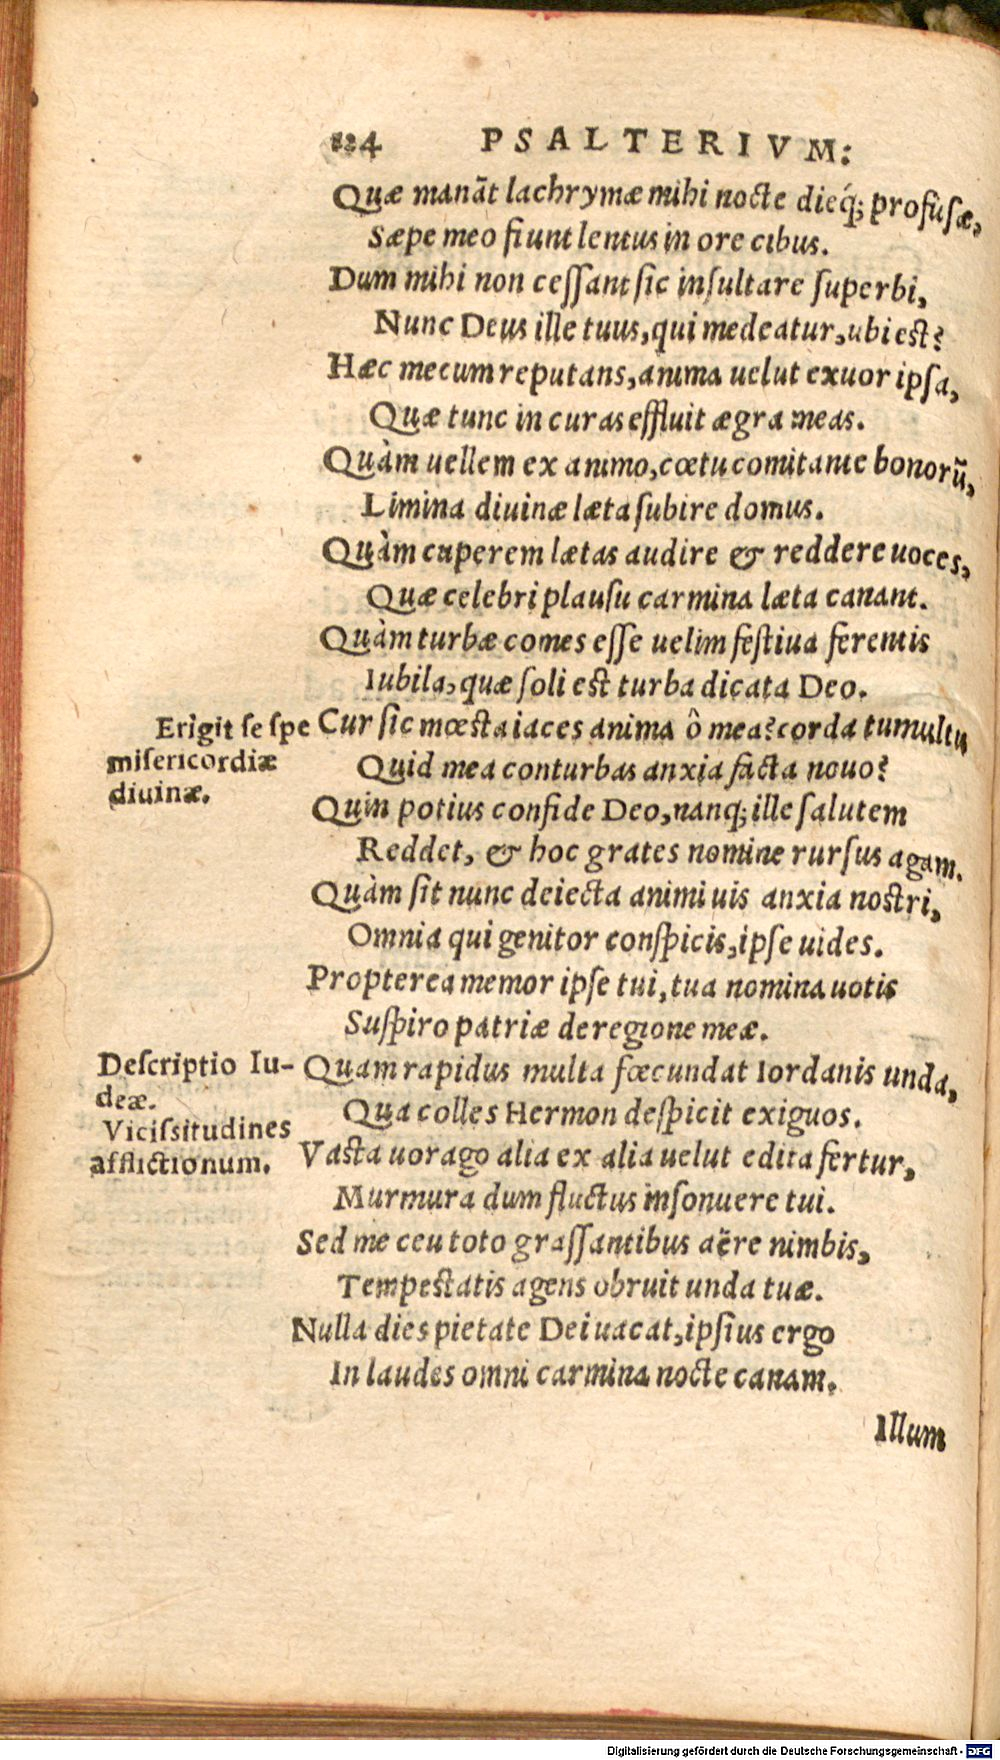 124 PSALTERIVM:
Quæ manãt lachrymæ mihi nocte dieq́; profusæ,
Sæpe meo fiunt lentus in ore cibus.
Dum mihi non cessant sic insultare superbi,
Nunc Deus ille tuus, qui medeatur, ubi est?
Hæc mecum reputans, anima uelut exuor ipsa,
Quæ tunc in curas effluit ægra meas.
Quàm uellem ex animo, cœtu comitante bonorũ,
Limina diuinæ læta subire domus.
Quàm cuperem lætas audire & reddere uoces,
Quæ celebri plausu carmina læta canant.
Quàm turbæ comes esse uelim festiua ferentis
Iubila, quæ soli est turba dicata Deo.
Erigit se spe
misericordiæ
diuinæ.
Cur sic mœsta iaces anima ô mea? corda tumultu
Quid mea conturbas anxia facta nouo?
Quin potius confide Deo, nanq; ille salutem
Reddet, & hoc grates nomine rursus agam.
Quàm sit nunc deiecta animi uis anxia nostri,
Omnia qui genitor conspicis, ipse uides.
Propterea memor ipse tui, tua nomina uotis
Suspiro patriæ de regione meæ.
Descriptio Iu-
deæ.
Vicissitudines
afflictionum.
Quam rapidus multa fœcundat Iordanis unda,
Qua colles Hermon despicit exiguos.
Vasta uorago alia ex alia uelut edita fertur,
Murmura dum fluctus insonuere tui.
Sed me ceu toto grassantibus aëre nimbis,
Tempestatis agens obruit unda tuæ.
Nulla dies pietate Dei uacat, ipsius ergo
In laudes omni carmina nocte canam.
Illum
Digitalisierung gefördert durch die Deutsche Forschungsgemeinschaft - DFG